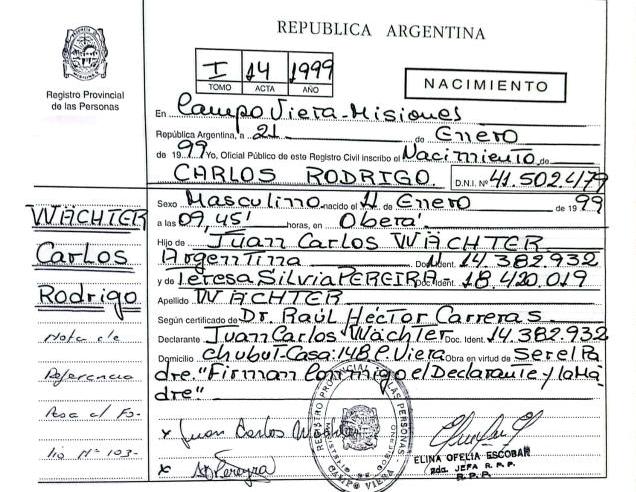 REPUBLICA ARGENTINA
Registro Provincial
de las Personas
I 14 1999
TOMO ACTA AÑO
NACIMIENTO
En Campo Viera-Misiones
República Argentina, a 21 de Enero
de 1999 Yo, Oficial Público de este Registro Civil inscribo el Nacimiento de
CARLOS RODRIGO. D.N.I. Nº 41.502.479
Sexo Masculino nacido el 11 de Enero de 1999
a las 09,45' horas, en Oberá
Hijo de Juan Carlos WÄCHTER
Argentina Doc. Ident. 14.382.932
y de Teresa Silvia PEREIRA Doc. Ident. 18.420.019
Apellido WÄCHTER
Según certificado de Dr. Raúl Héctor Carreras
Declarante Juan Carlos Wächter Doc. Ident. 14.382.932
Domicilio chubut-Casa:148 C. Viera Obra en virtud de Ser el Pa
dre." Firman Conmigo el Declarante y la Ma
dre"
WÄCHTER
Carlos
Rodrigo
Nota de
Referencia
Pasa al Fo-
lio Nº 103-
x Juan Carlos Wächter
x
REGISTRO PROVINCIAL DE LAS PERSONAS
CAMPO VIERA
ELINA OFELIA ESCOBAR
2da. JEFA R. P. P.
R. P. P.